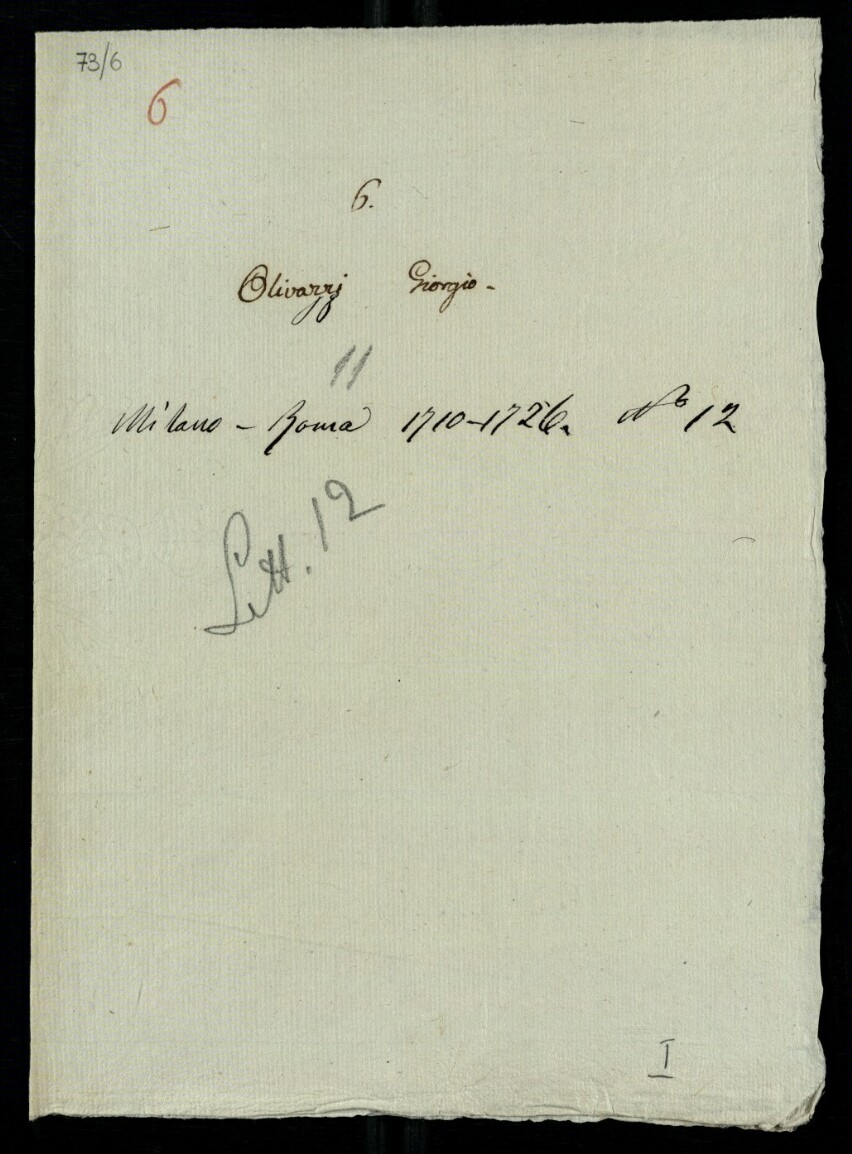 73/6
6
6.
Olivazzj Giorgio -
11
Milano - Roma 1710-1726. No 12
Lett. 12
I